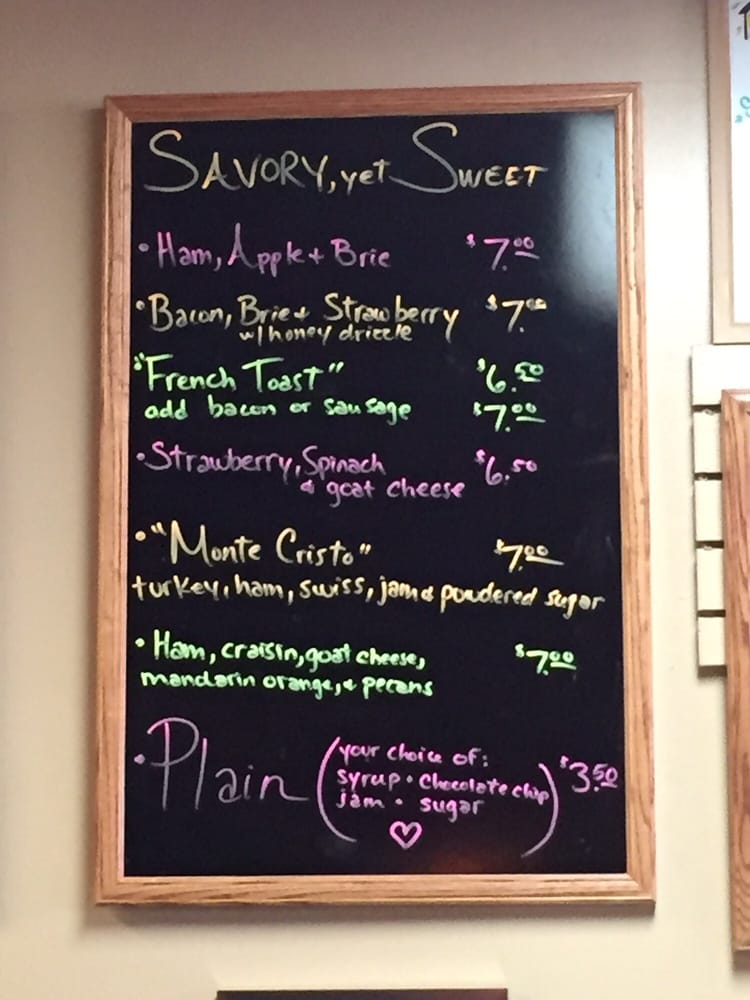 SAVORY, yet SWEET
• Ham, Apple + Brie $7.00
• Bacon, Brie + Strawberry $7.00
w/ honey drizzle
• "French Toast" $6.50
add bacon or sausage $7.00
• Strawberry, Spinach $6.50
& goat cheese
• "Monte Cristo" $7.00
turkey, ham, swiss, jam & powdered sugar
• Ham, craisin, goat cheese, $7.00
mandarin orange, + pecans
• Plain (your choice of: $3.50
syrup • Chocolate chip
jam • sugar)